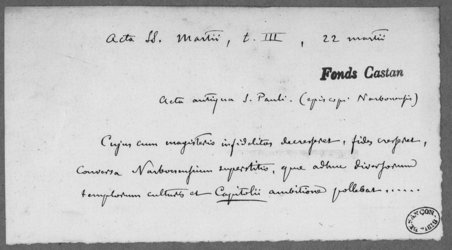 Acta SS. Martii, t. III, 22 martii
Fonds Castan
Acta antiqua S. Pauli. (episcopi Narbonensis)
Cujus cum magisterio infidelitas decresceret, fides cresceret,
conversa Narbonensium superstitio, quae adhuc diversorum
templorum cultures et Capitolii ambitione pollebat......